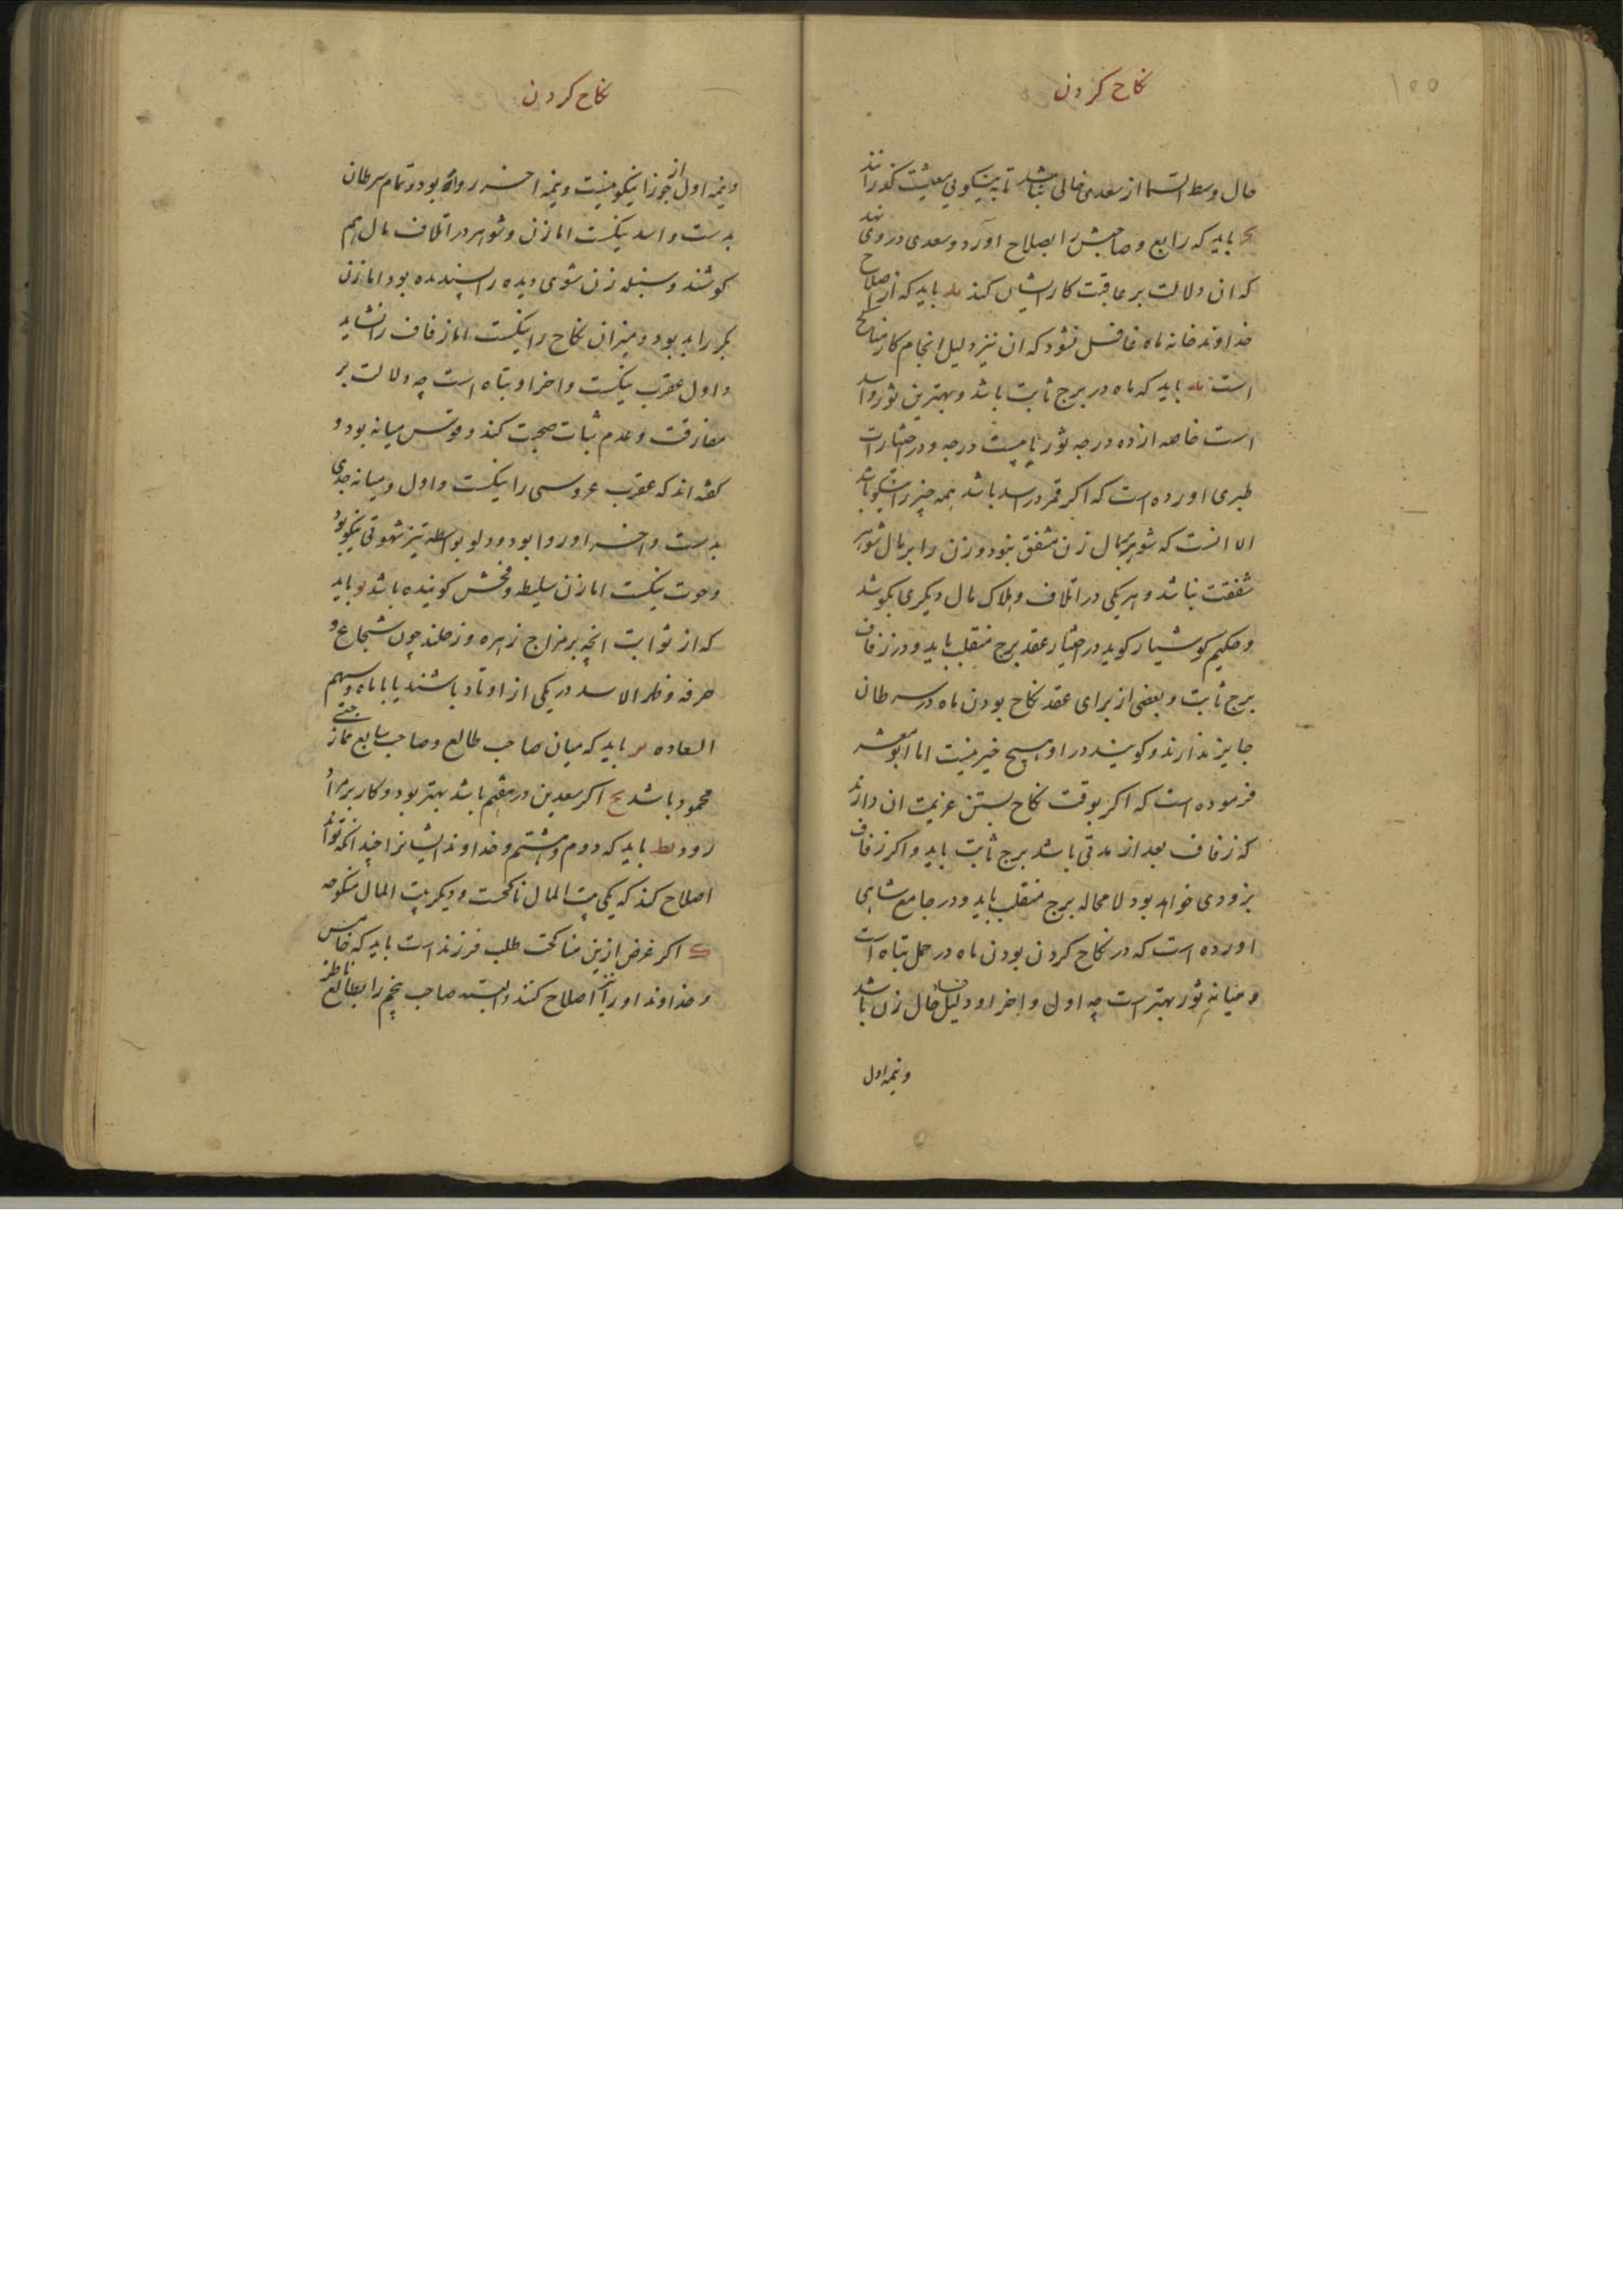 ۱۵۵
نکاح کردن
حال وسط السما از سعدی خالی نباشد تا به نیکویی معیشت کذرانند
یح باید که رابع و صاحبش را بصلاح آورد و سعدی در وی نهد
که ان دلالت بر عاقبت کار ایشان کند ید باید که از اصلاح
خداوند خانه ماه غافل نشود که ان نیز دلیل انجام کار مناکح
است یه باید که ماه در برج ثابت باشد و بهترین ثور و اسد
است خاصه از ده درجه ثور تا بیست درجه و در اختیارات
طبری اورده است که اکر قمر در اسد باشد همه چیز را نیکو باشد
الا انست که شوهر بمال زن مشفق نبود و زن را بر مال شوهر
شفقت نباشد و هر یکی در اتلاف و هلاک مال دیکری بکوشد
و حکیم کوشیار کوید در اختیار عقد برج منقلب باید و در زفاف
برج ثابت و بعضی از برای عقد نکاح بودن ماه در سرطان
جایز ندارند و کویند در او هیچ خیر نیست اما ابو معشر
فرموده است که اکر بوقت نکاح بستن عزیمت ان دارند
که زفاف بعد از مدتی باشد برج ثابت باید و اکر زفاف
بزودی خواهد بود لا محاله برج منقلب باید و در جامع شاهی
اورده است که در نکاح کردن بودن ماه در حمل تباه است
و میانه ثور بهتر است چه اول و اخر او دلیل فساد حال زن باشد
و نیمه اول
نکاح کردن
و نیمه اول از جوزا نیکو نیست و نیمه اخر روا بود و تمام سرطان
بدست و اسد نیکست اما زن و شوهر در اتلاف مال هم
کوشند و سنبله زن شوی دیده را پسندیده بود اما زن
بکر را بد بود و میزان نکاح را نیکست اما زفاف را نشاید
و اول عقرب نیکست و اخر او تباه است چه دلالت بر
مفارقت و عدم ثبات صحبت کند و قوس میانه بود و
کفته اند که عقرب عروسی را نیکست و اول و میانه جدی
بدست و اخر او روا بود و دلو بواسطه تیز شهوتی نیکو بود
و حوت نیکست اما زن سلیطه و فحش کوینده باشد یو باید
که از ثوابت انچه بر مزاج زهره و زحلند چون شجاع و
صرفه و ظهر الاسد در یکی از اوتاد باشند یا با ماه و سهم
السعاده یر باید که میان صاحب طالع و صاحب سابع ممازجتی
محمود باشد یح اکر سعدین در هفتم باشد بهتر بود و کار بر مراد
رود یط باید که دوم و هشتم و خداوند ایشانرا چندانکه تواند
اصلاح کند که یکی بیت المال ناکحست و دیکر بیت المال منکوحه
ک اکر غرض ازین مناکحت طلب فرزند است باید که خامس
و خداوند او را نیز اصلاح کنند و البته صاحب پنجم را بطالع ناظر